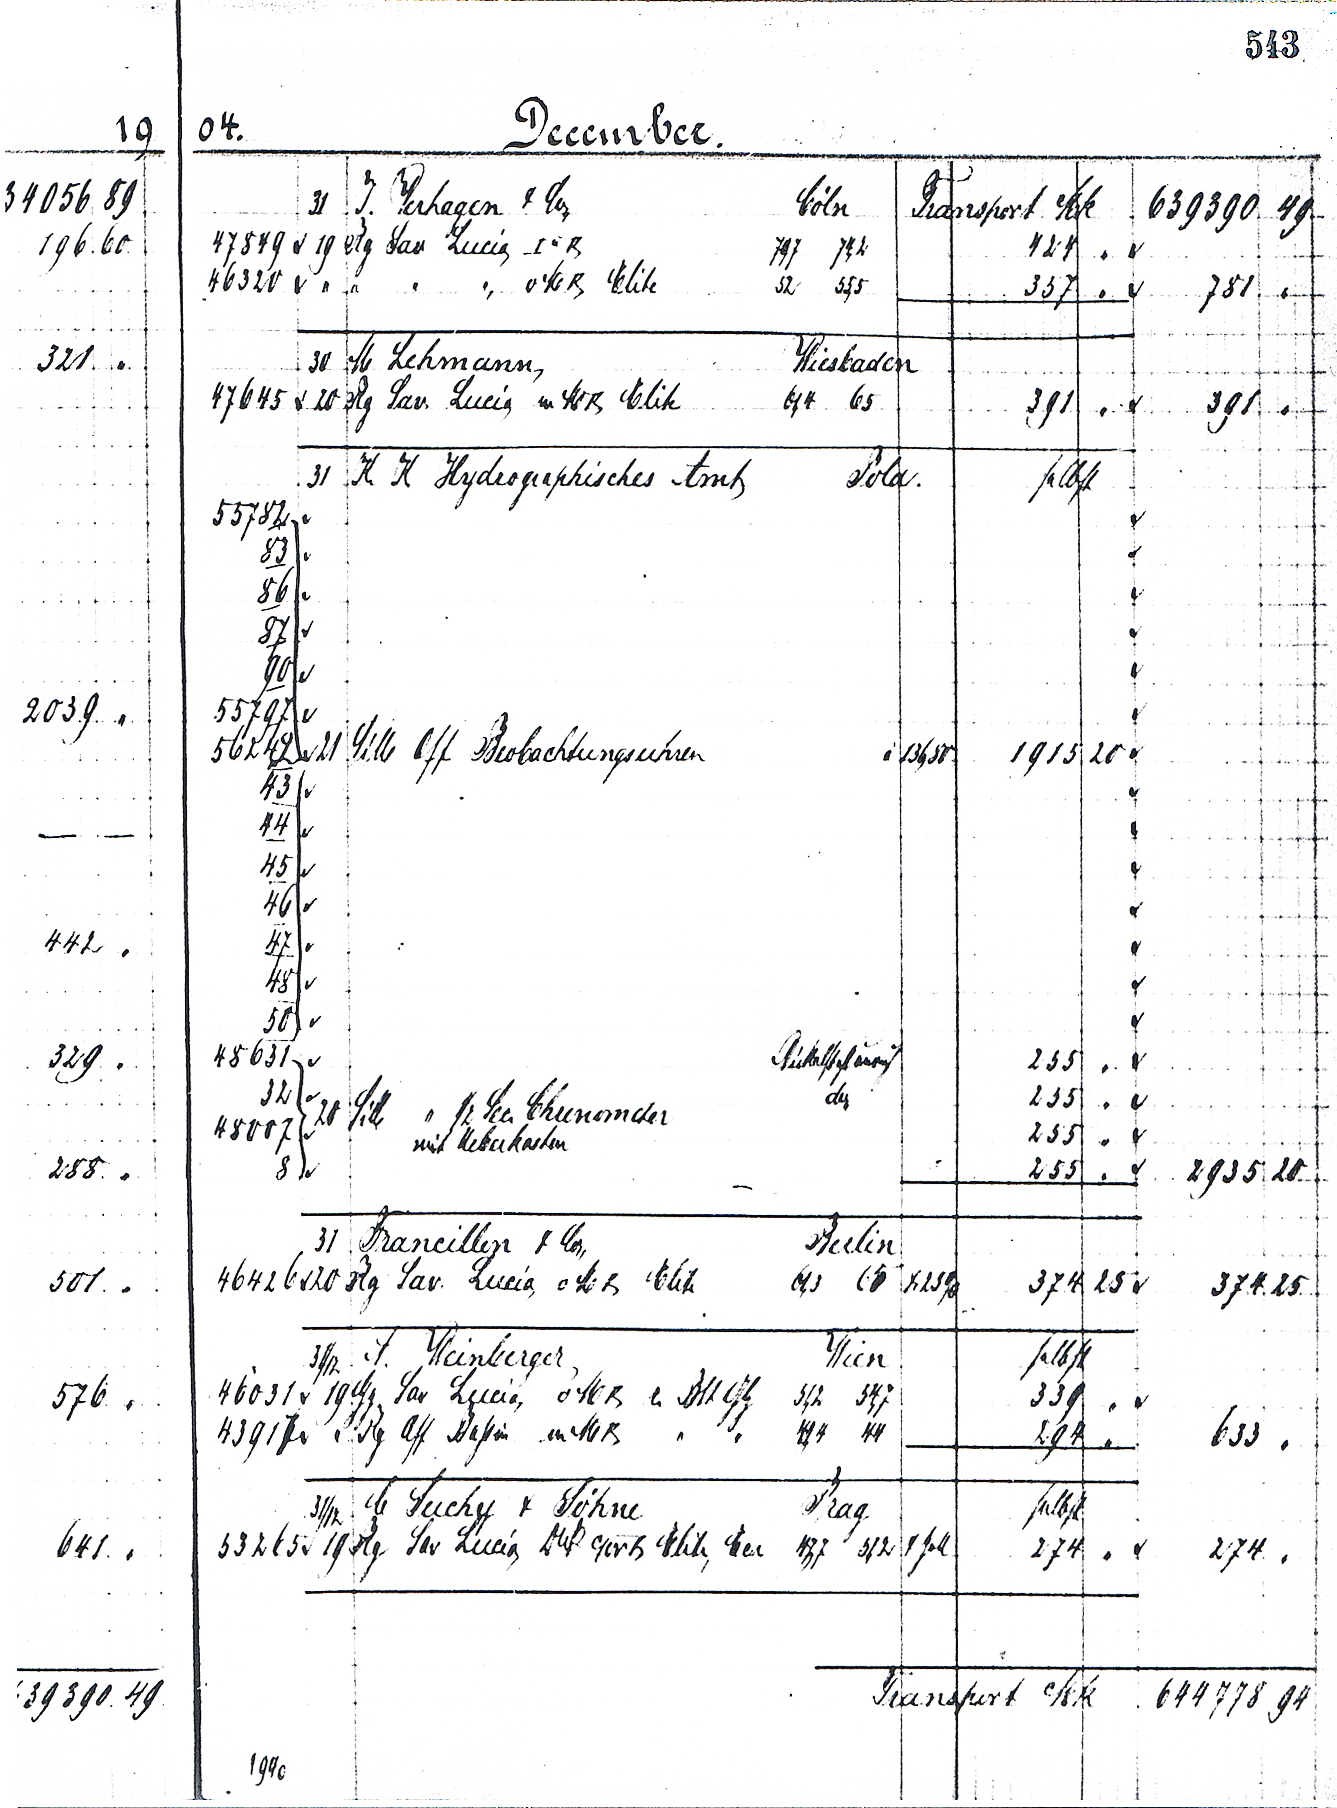 543
19 04. December.
34056 89 31 J. Verhagen & Co, Cöln Transport Mk 639390 49
196 60 47849 19 Rg Sav Lucia 424 .
46320 " " " " Elite 52 55,5 357 . 781 .
321 . 30 M Lehmann, Wiesbaden
47645 20 Rg Sav. Lucia Elite 64,4 65 391 . 391 .
31 K K Hydrographisches Amt, Pola. selbst
55782
83
86
87
90
2039 . 55797
56242 21 Silb Off Beobachtungsuhren à 136,80 1915 20
43
44
45
46
442 . 47
48
50
329 . 48631 255 .
32 do 255 .
48007 20 Silb " See Chronometer 255 .
mit Ueberkasten
288 . 8 255 . 2935 20
31 Francillon & Co, Berlin
501 . 46426 20 Rg Sav. Lucia Elite 374 25 374 25
31/12 A. Weinberger, Wien selbst
576 . 46031 19 Sav Lucia, 339 .
Off 294 . 633 .
31/12 C Suchy & Söhne Prag selbst
641 . 53265 19 Rg Sav Lucia Elite, 274 . 274 .
39390 49 Transport Mk 644778 94